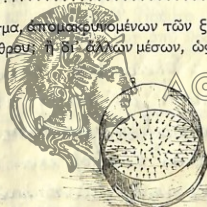 γμα, απομακρυνομένων τῶν ξ
θρου; ἢ δι' ἄλλων μέσων, ὡς